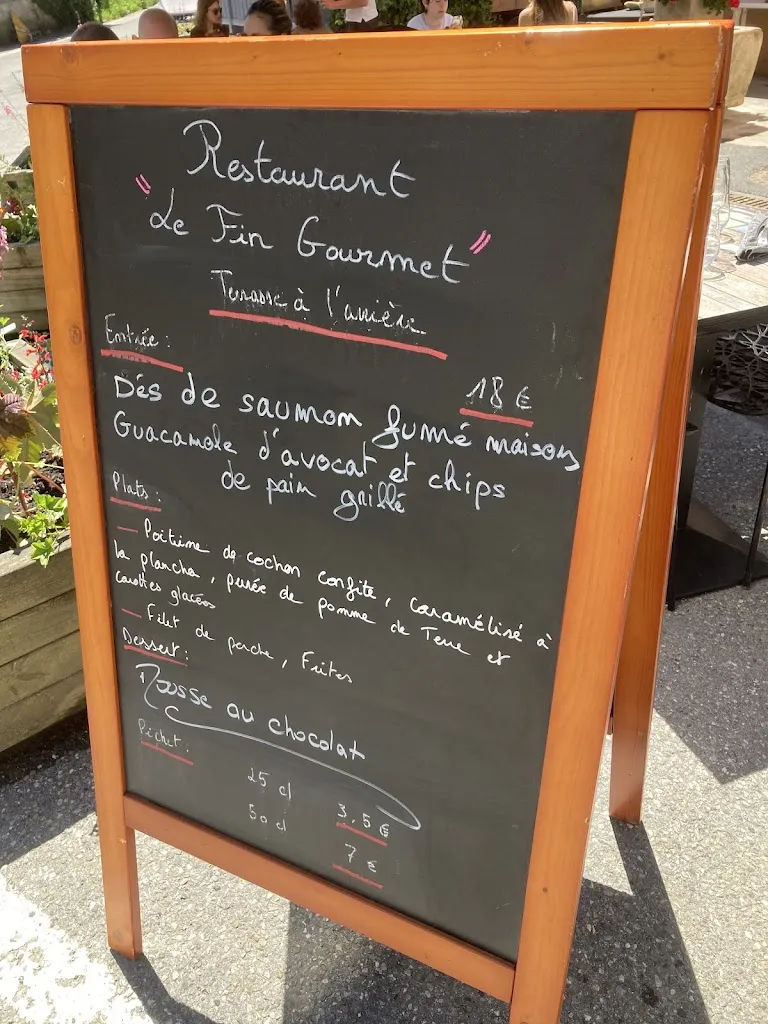 Restaurant
" Le Fin Gourmet "
Terrasse à l'arrière
Entrée :
18 €
Dés de saumon fumé maison
Guacamole d'avocat et chips
de pain grillé
Plats :
— Poitrine de cochon confite, caramélisé à
la plancha, purée de pomme de Terre et
carottes glacées
— Filet de perche, Frites
Dessert :
Mousse au chocolat
Pichet :
25 cl 3,5 €
50 cl 7 €